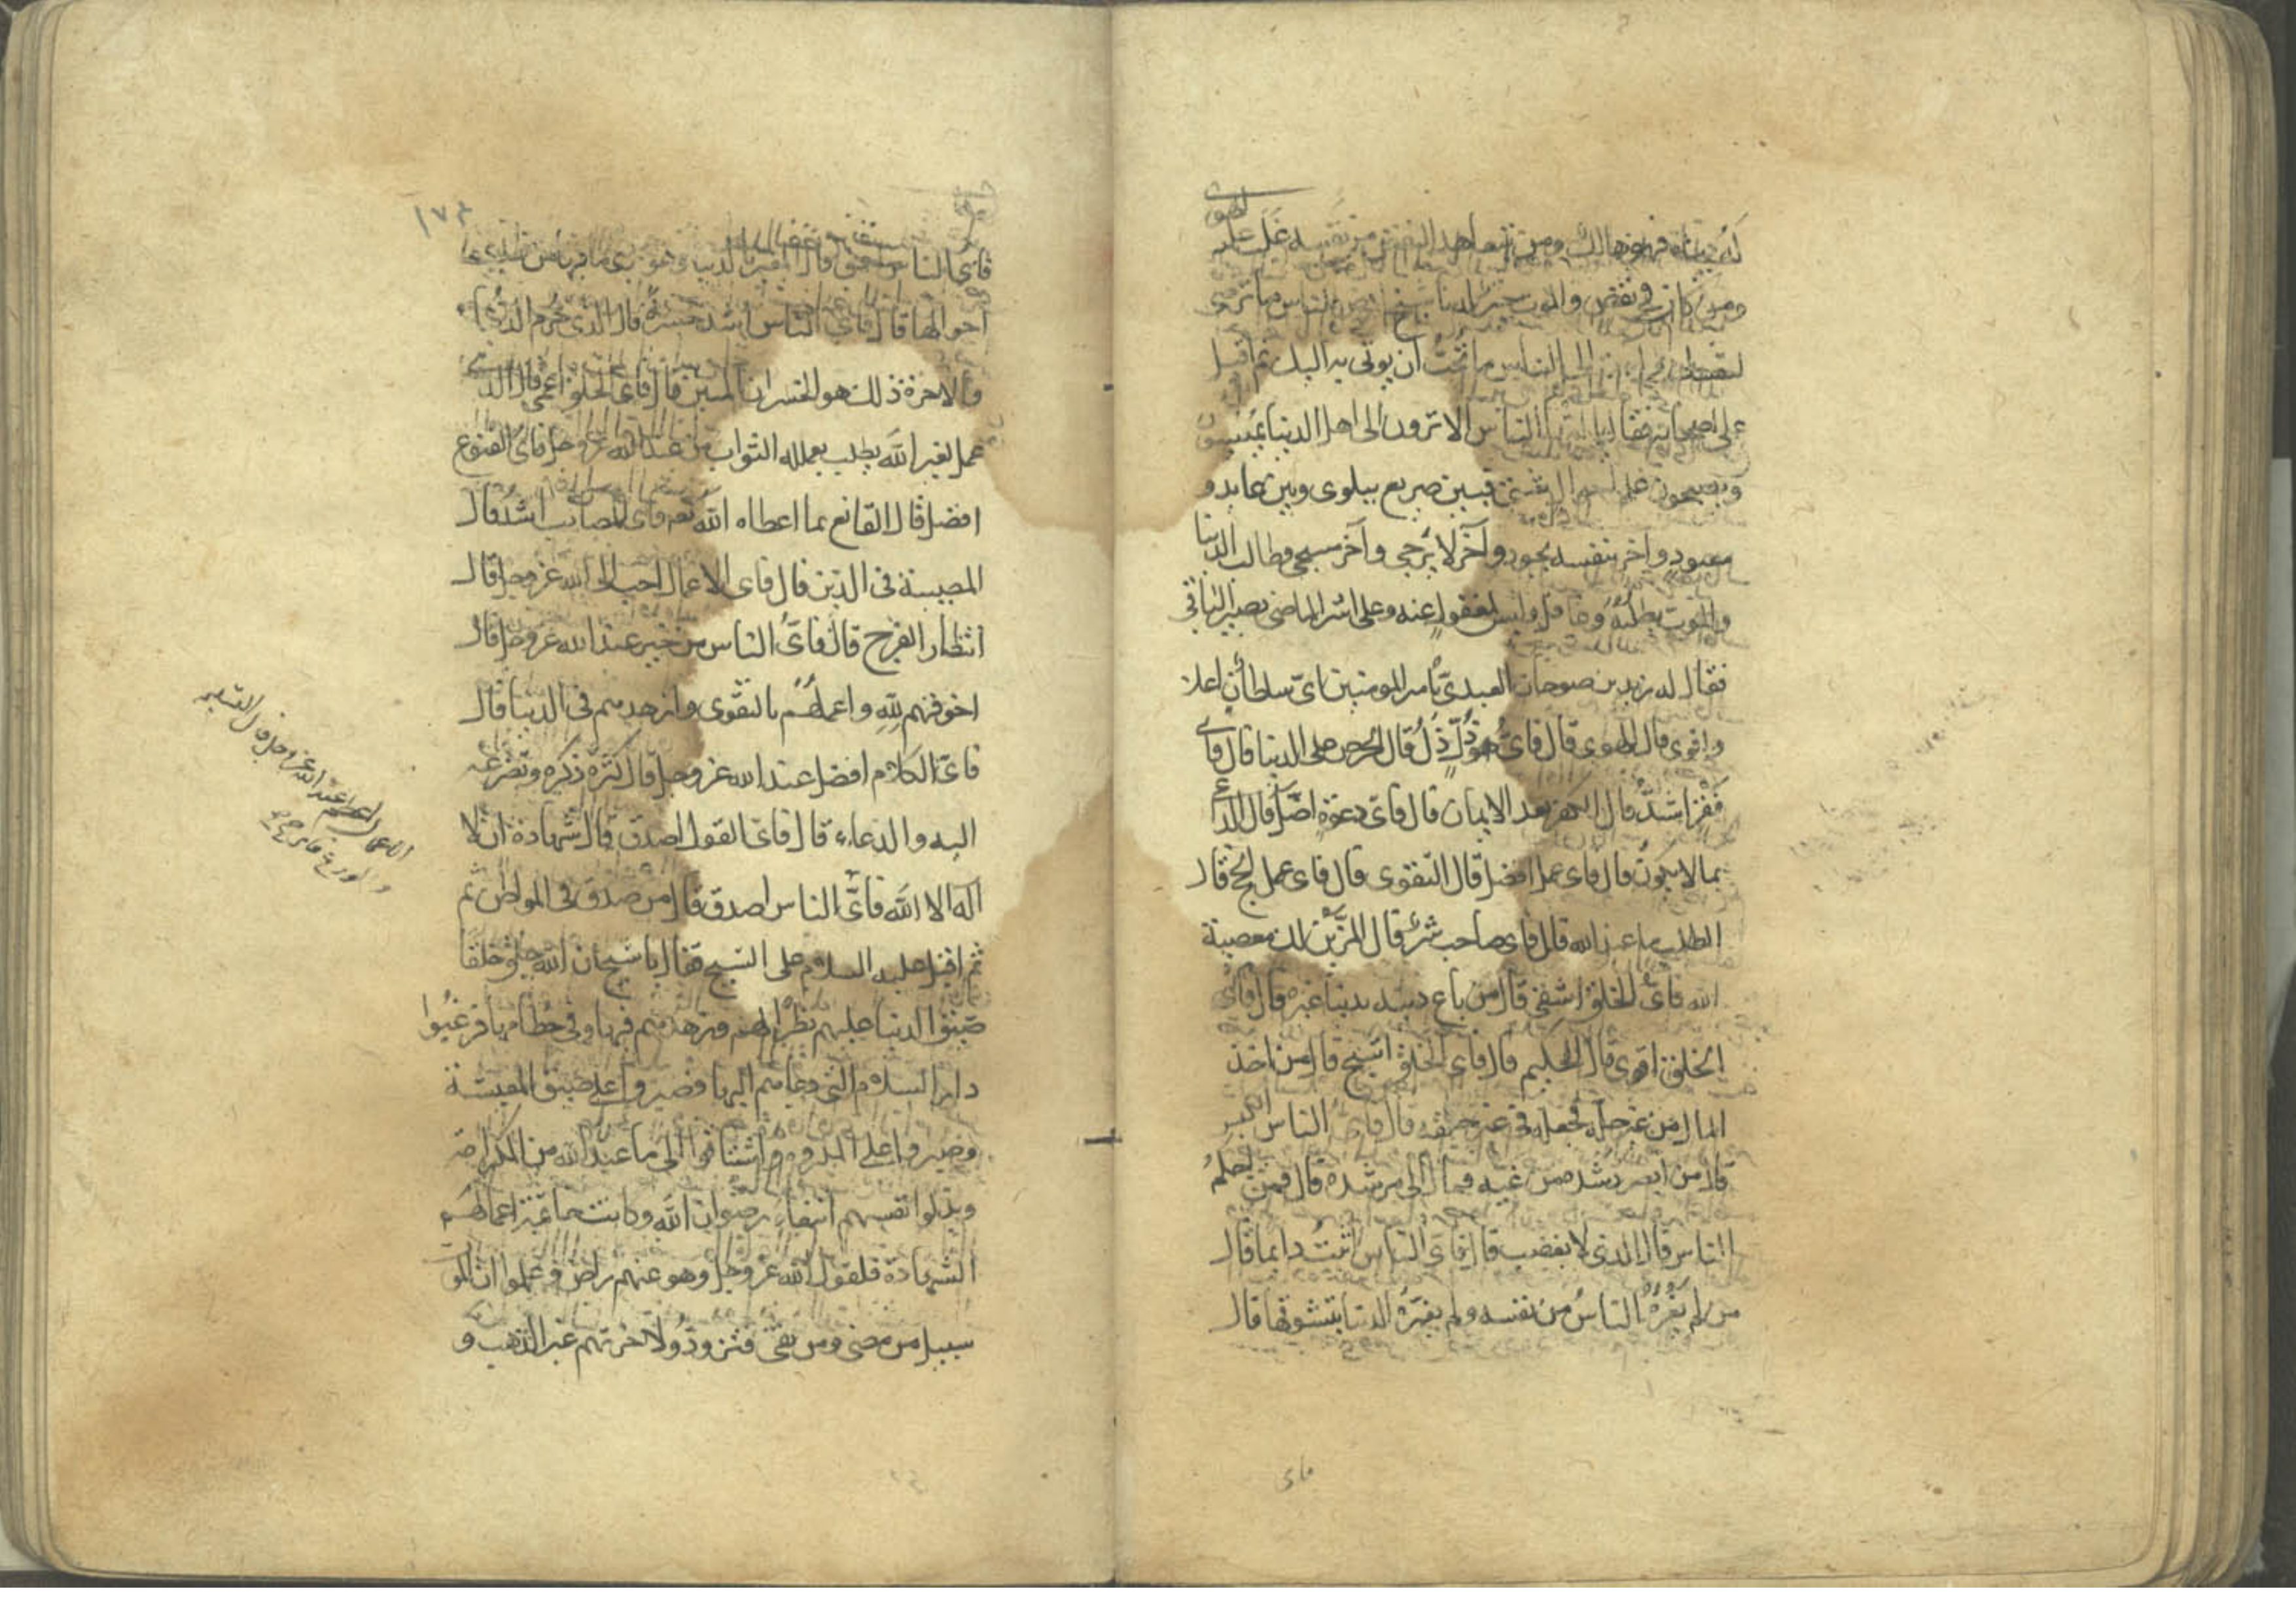 ومن كان في نقص والموت خير له يا شيخ ارض للناس ما ترضى
لنفسك الى الناس ما تحب ان يوتى اليك ثم اقبل
على اصحابه فقال ايها الناس الا ترون الى اهل الدنيا يمسون
ويصبحون على احوال شتى فبين صريع يتلوى وبين عايد و
معود وآخر بنفسه يجود وآخر لا يرجى وآخر مسجى وطالب الدنيا
والموت يطلبه وغافل وليس بمغفول عنه وعلى اثر الماضى يصير الباقى
فقال له زيد بن صوحان العبدى يا امير المومنين اى سلطان اغلب
واقوى قال الهوى قال فاى ذل اذل قال الحرص على الدنيا قال فاى
فقر اشد قال الكفر بعد الايمان قال فاى دعوة اضل قال الداعى
بما لا يكون قال فاى عمل افضل قال التقوى قال فاى عمل انجح قال
الطلب ما عند الله قال فاى صاحب شر قال المزين لك معصية
الله فاى الخلق اشقى قال من باع دينه بدنيا غيره قال فاى
الخلق اقوى قال الحليم قال فاى الخلق اشح قال من اخذ
المال من غير حله فجعله فى غير حقه قال فاى الناس اكيس
قال من ابصر رشده من غيه فمال الى رشده قال فمن احلم
الناس قال الذى لا يغضب قال فاى الناس اثبت دايما قال
من لم يغره الناس من نفسه ولم يغره الدنيا بتشوقها قال
فاى
١٧٤
فاى الناس احمق قال المغتر بالدنيا وهو يرى ما فيها من تقلب
احوالها قال فاى الناس اشد حسرة قال الذى حرم الدنيا
والاخرة ذلك هو الخسران المبين قال فاى الخلق اعمى قال الذى
عمل لغير الله يطلب بعمله الثواب من عند الله عز وجل فاى القنوع
افضل قال القانع بما اعطاه الله نعم فاى المصائب اشد قال
المصيبة فى الدين قال فاى الاعمال احب الى الله عز وجل قال
انتظار الفرج قال فاى الناس من خير عند الله عز وجل قال
اخوفهم لله واعملهم بالتقوى وازهدهم فى الدنيا قال
فاى الكلام افضل عند الله عز وجل قال كثرة ذكره وتضرعه
اليه والدعاء قال فاى القول اصدق قال شهادة ان لا
اله الا الله فاى الناس اصدق قال من صدق فى المواطن ثم
ثم اقبل عليه السلام على الشيخ فقال يا شيخ ان الله خلق خلقا
ضيق الدنيا عليهم نظرا لهم فزهدهم فيها وفى حطامها فرغبوا
دار السلام التى دعاهم اليها وصبروا على ضيق المعيشة
وصبروا على المكروه واشتاقوا الى ما عند الله من الكرامة
وبذلوا انفسهم ابتغاء رضوان الله وكانت خاتمة اعمالهم
الشهادة فلقوا الله عز وجل وهو عنهم راض وعلموا ان الموت
سبيل من مضى ومن بقى فتزودوا لاخرتهم غير الذهب و
عند الله عز وجل قال التسليم
والورع